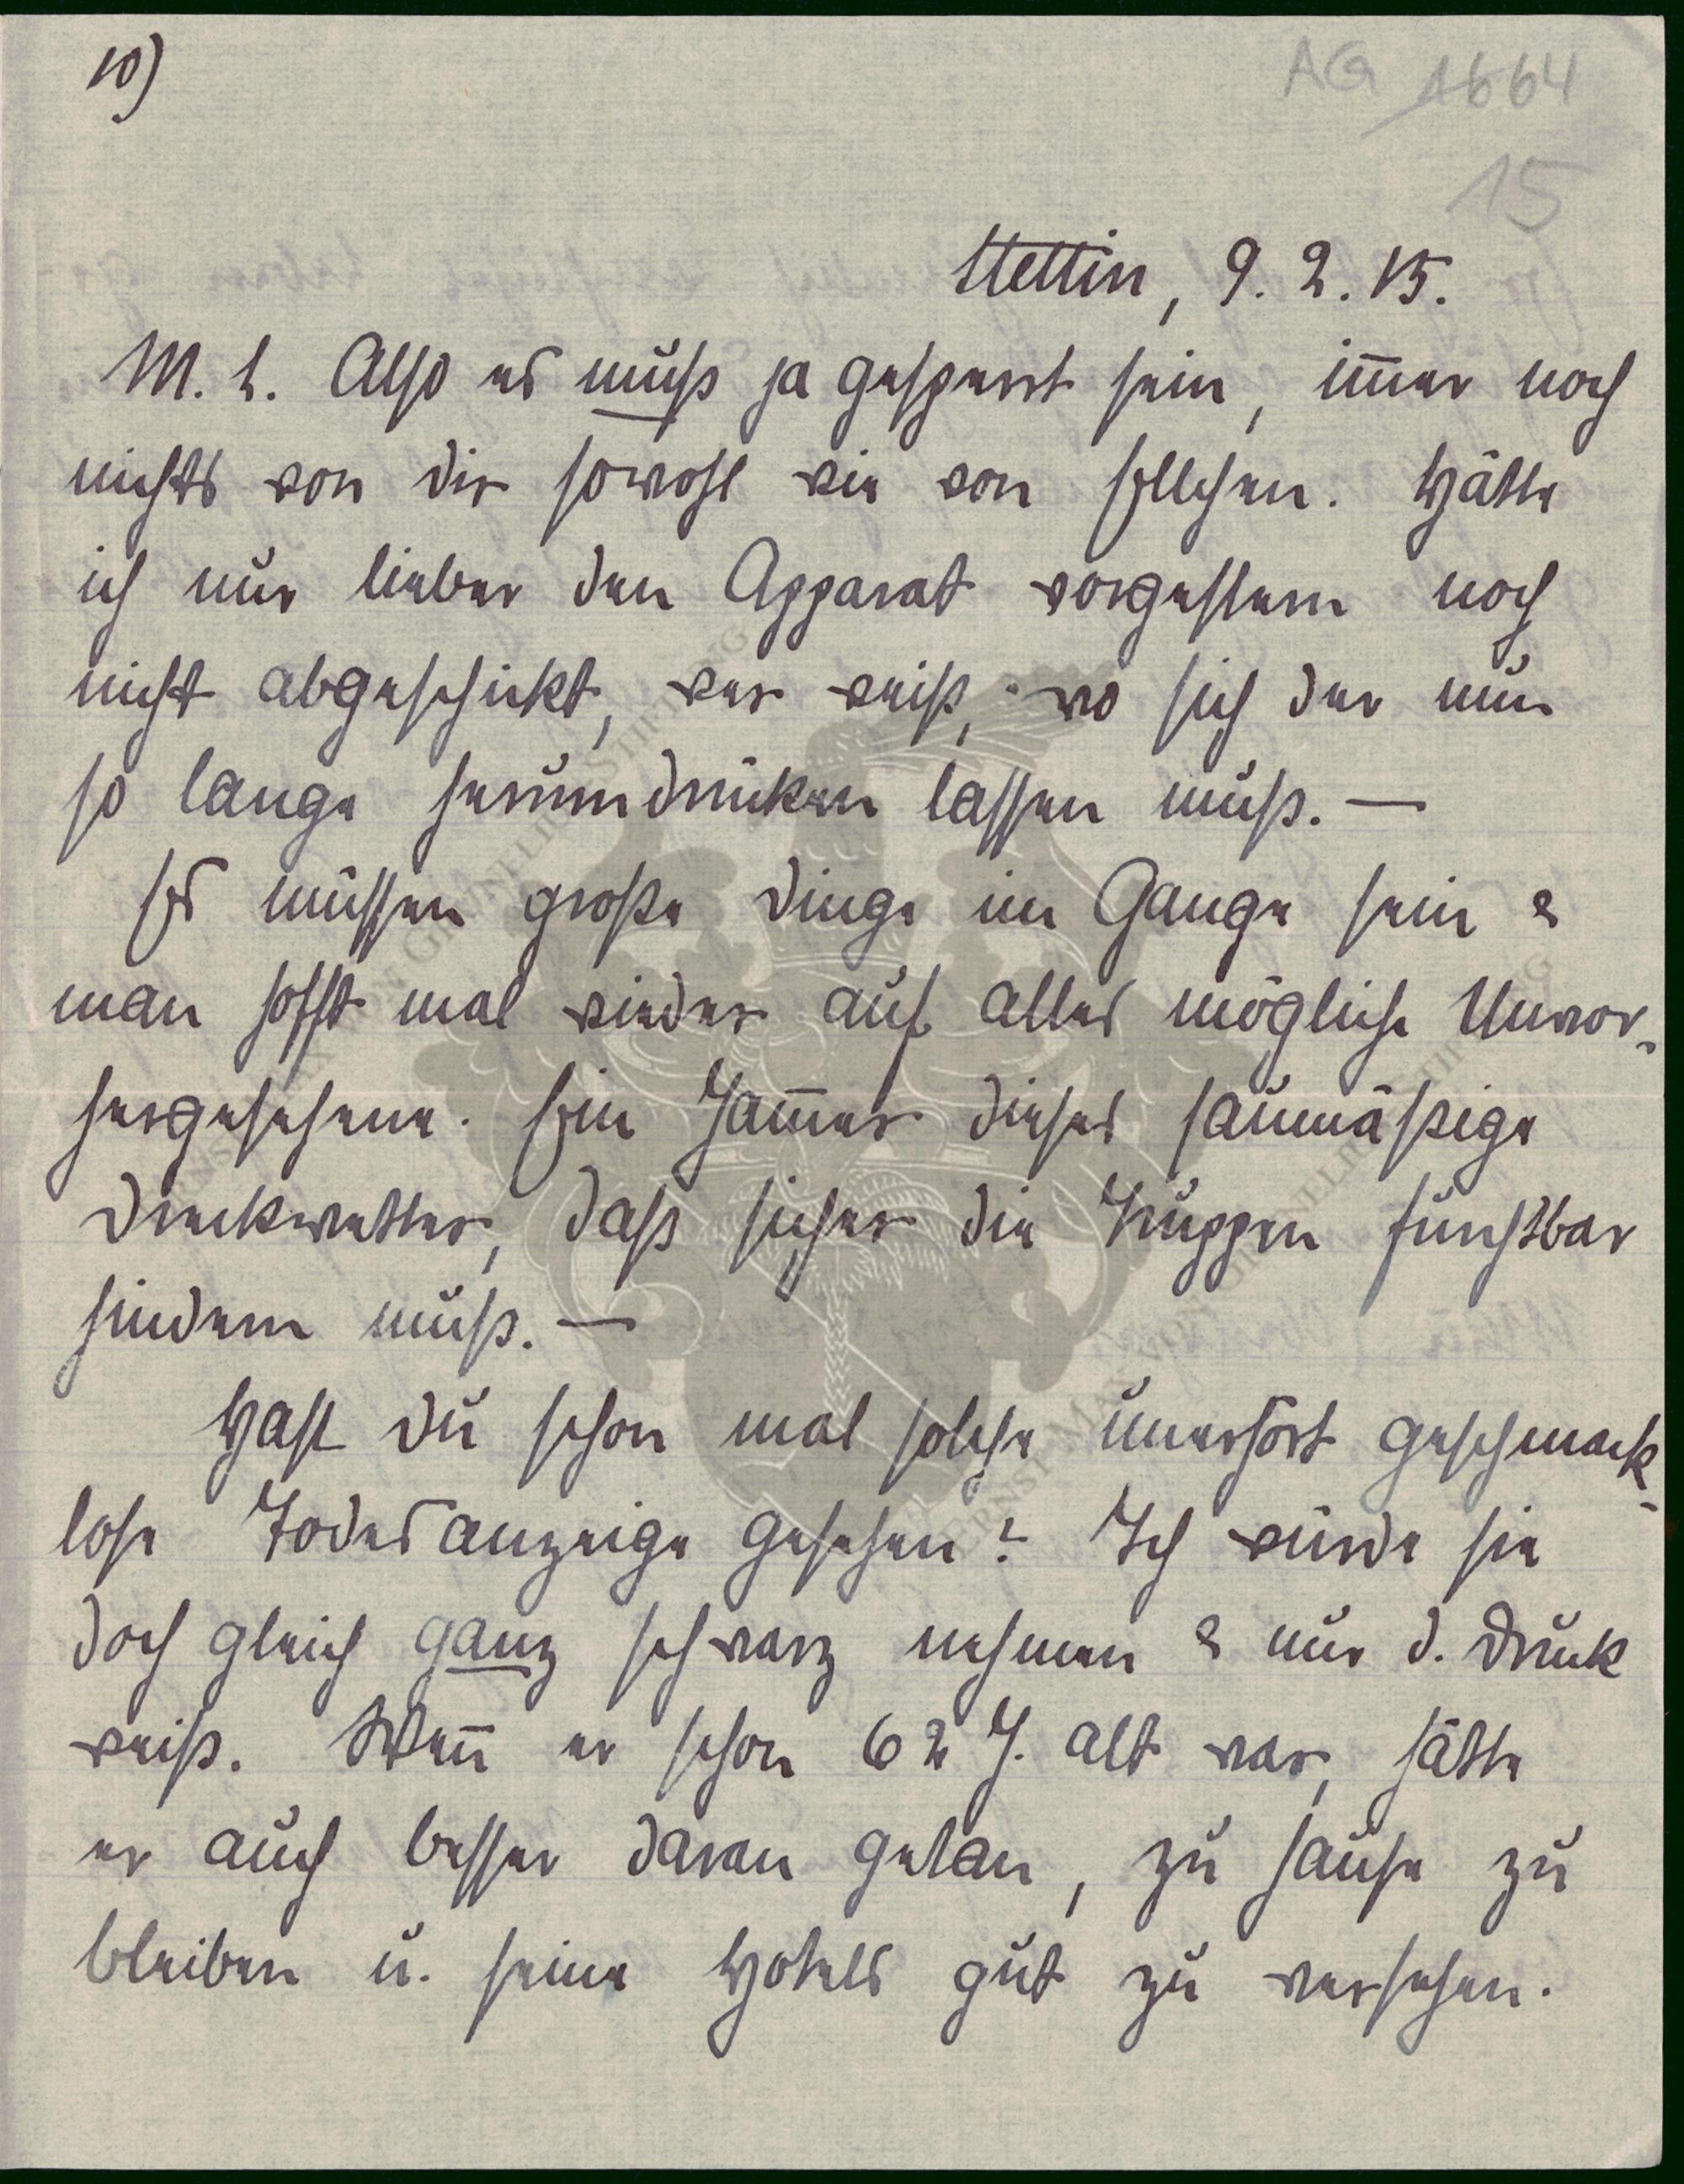 10)
AG 1664
15
Stettin, 9. 2. 15.
M. L. Also es muß ja gesperrt sein, im̄er noch
nichts von dir sowohl wie von Ellchen. Hätte
ich nur lieber den Apparat vorgestern noch
nicht abgeschickt, wer weiß, wo sich der nun
so lange herumdrücken lassen muß. —
Es müssen große Dinge im Gange sein &
man hofft mal wieder auf alles mögliche Unvor-
hergesehene. Ein Jam̄er dieses saumäßige
Dreckwetter, daß sicher die Truppen furchtbar
hindern muß. —
Hast du schon mal solche unerhört geschmack-
lose Todesanzeige gesehen? Ich würde sie
doch gleich ganz schwarz nehmen & nur d. Druck
weiß. Wen̄ er schon 62 J. alt war, hätte
er auch besser daran getan, zu hause zu
bleiben u. seine Hotels gut zu versehen.